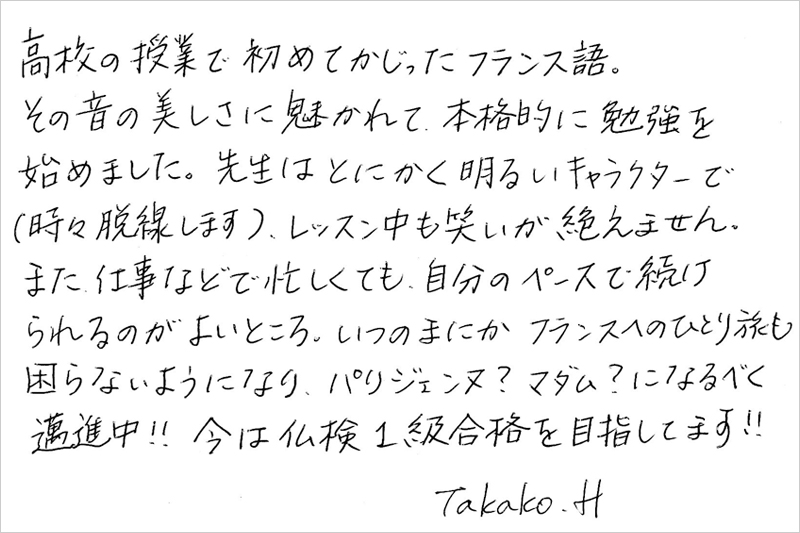 高校の授業で初めてかじったフランス語。
その音の美しさに魅かれて、本格的に勉強を
始めました。先生はとにかく明るいキャラクターで
(時々脱線します)、レッスン中も笑いが絶えません。
また、仕事などで忙しくても、自分のペースで続け
られるのがよいところ。いつのまにか フランスへのひとり旅も
困らないようになり、パリジェンヌ?マダム?になるべく
邁進中!! 今は仏検1級合格を目指してます!!
Takako.H